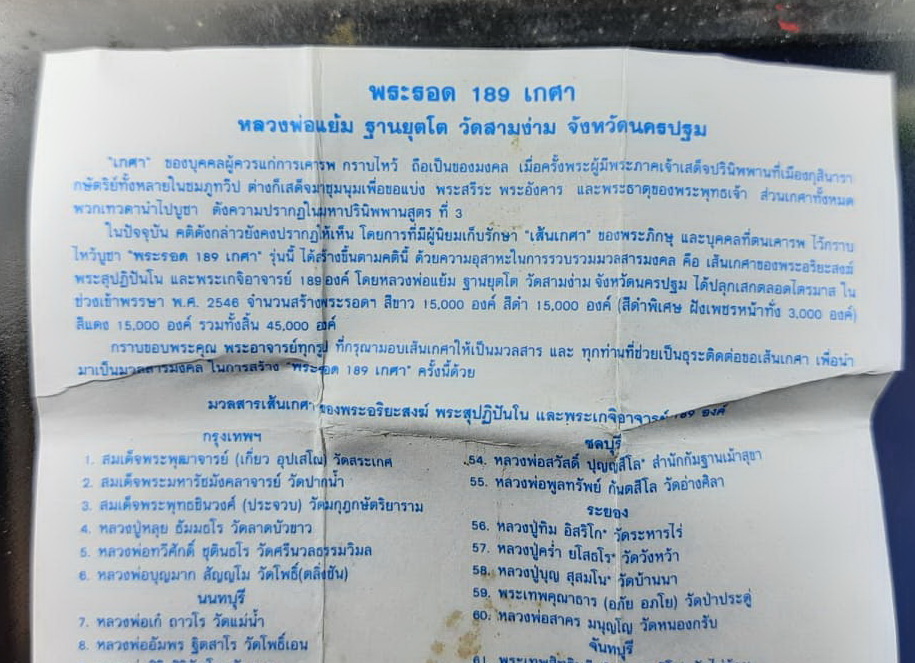 พระรอด 189 เกศา
หลวงพ่อแย้ม ฐานยุตโต วัดสามง่าม จังหวัดนครปฐม
"เกศา" ของบุคคลผู้ควรแก่การเคารพ กราบไหว้ ถือเป็นของมงคล เมื่อครั้งพระผู้มีพระภาคเจ้าเสด็จปรินิพพานที่เมืองกุสินารา
กษัตริย์ทั้งหลายในชมภูทวีป ต่างก็เสด็จมาชุมนุมเพื่อขอแบ่ง พระสรีระ พระอังคาร และพระธาตุของพระพุทธเจ้า ส่วนเกศาทั้งหมด
พวกเทวดานำไปบูชา ดังความปรากฏในมหาปรินิพพานสูตร ที่ 3
ในปัจจุบัน คติดังกล่าวยังคงปรากฏให้เห็น โดยการที่มีผู้นิยมเก็บรักษา "เส้นเกศา" ของพระภิกษุ และบุคคลที่ตนเคารพ ไว้กราบ
ไหว้บูชา "พระรอด 189 เกศา" รุ่นนี้ ได้สร้างขึ้นตามคตินี้ ด้วยความอุสาหะในการรวบรวมมวลสารมงคล คือ เส้นเกศาของพระอริยะสงฆ์
พระสุปฏิปันโน และพระเกจิอาจารย์ 189 องค์ โดยหลวงพ่อแย้ม ฐานยุตโต วัดสามง่าม จังหวัดนครปฐม ได้ปลุกเสกตลอดไตรมาส ใน
ช่วงเข้าพรรษา พ.ศ. 2546 จำนวนสร้างพระรอดฯ สีขาว 15,000 องค์ สีดำ 15,000 องค์ (สีดำพิเศษ ฝังเพชรหน้าทั่ง 3,000 องค์)
สีแดง 15,000 องค์ รวมทั้งสิ้น 45,000 องค์
กราบขอบพระคุณ พระอาจารย์ทุกรูป ที่กรุณามอบเส้นเกศาให้เป็นมวลสาร และ ทุกท่านที่ช่วยเป็นธุระติดต่อขอเส้นเกศา เพื่อนำ
มาเป็นมวลสารมงคล ในการสร้าง "พระรอด 189 เกศา" ครั้งนี้ด้วย
มวลสารเส้นเกศาของพระอริยะสงฆ์ พระสุปฏิปันโน และพระเกจิอาจารย์ 189 องค์
กรุงเทพฯ
1. สมเด็จพระพุฒาจารย์ (เกี่ยว อุปเสโณ) วัดสระเกศ
2. สมเด็จพระมหารัชมังคลาจารย์ วัดปากน้ำ
3. สมเด็จพระพุทธชินวงศ์ (ประจวบ) วัดมกุฎกษัตริยาราม
4. หลวงปู่หลุย ธัมมธโร วัดลาดบัวขาว
5. หลวงพ่อทวีศักดิ์ ชุตินธโร วัดศรีนวลธรรมวิมล
6. หลวงพ่อบุญมาก สัญญโม วัดโพธิ์(ตลิ่งชัน)
นนทบุรี
7. หลวงพ่อเก๋ ถาวโร วัดแม่น้ำ
8. หลวงพ่ออัมพร ฐิตสาโร วัดโพธิ์เอน
ชลบุรี
54. หลวงพ่อสวัสดิ์ ปุญญสีโล* สำนักกัมฐานเม้าสุขา
55. หลวงพ่อพูลทรัพย์ กันตสีโล วัดอ่างศิลา
ระยอง
56. หลวงปู่ทิม อิสริโก* วัดระหารไร่
57. หลวงปู่คร่ำ ยโสธโร* วัดวังหว้า
58. หลวงปู่บุญ สุสมโน* วัดบ้านนา
59. พระเทพคุณาธาร (อภัย อภโย) วัดป่าประดู่
60. หลวงพ่อสาคร มนุญโญ วัดหนองกรับ
จันทบุรี